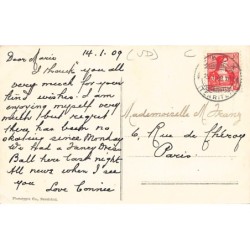 14.1.09
(VD)
C
Dear Marie
I thank you all
very much for your
kind wishes. I am
enjoying myself very
much but regret
there has been no
skating since Monday
We Had a Fancy Dress
Ball here last night
All news when I see
you
Love Connie
Mademoiselle M. Franz
6, Rue de Chéroy
Paris